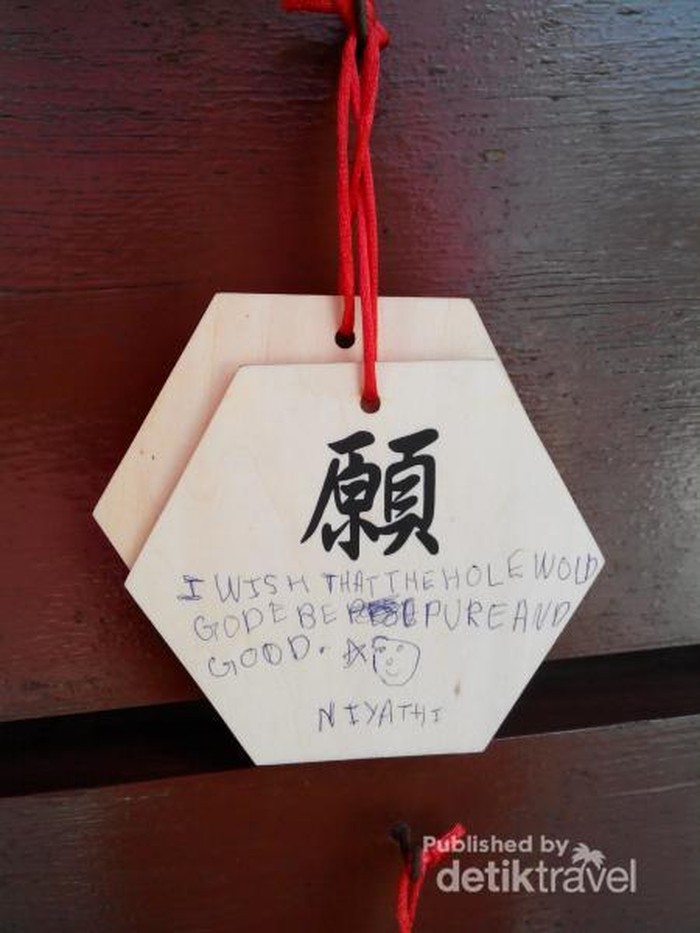 願
I WISH THAT THE HOLE WOLD
GODE BE PURE AND
GOOD.
NIYATHI
Published by
detiktravel